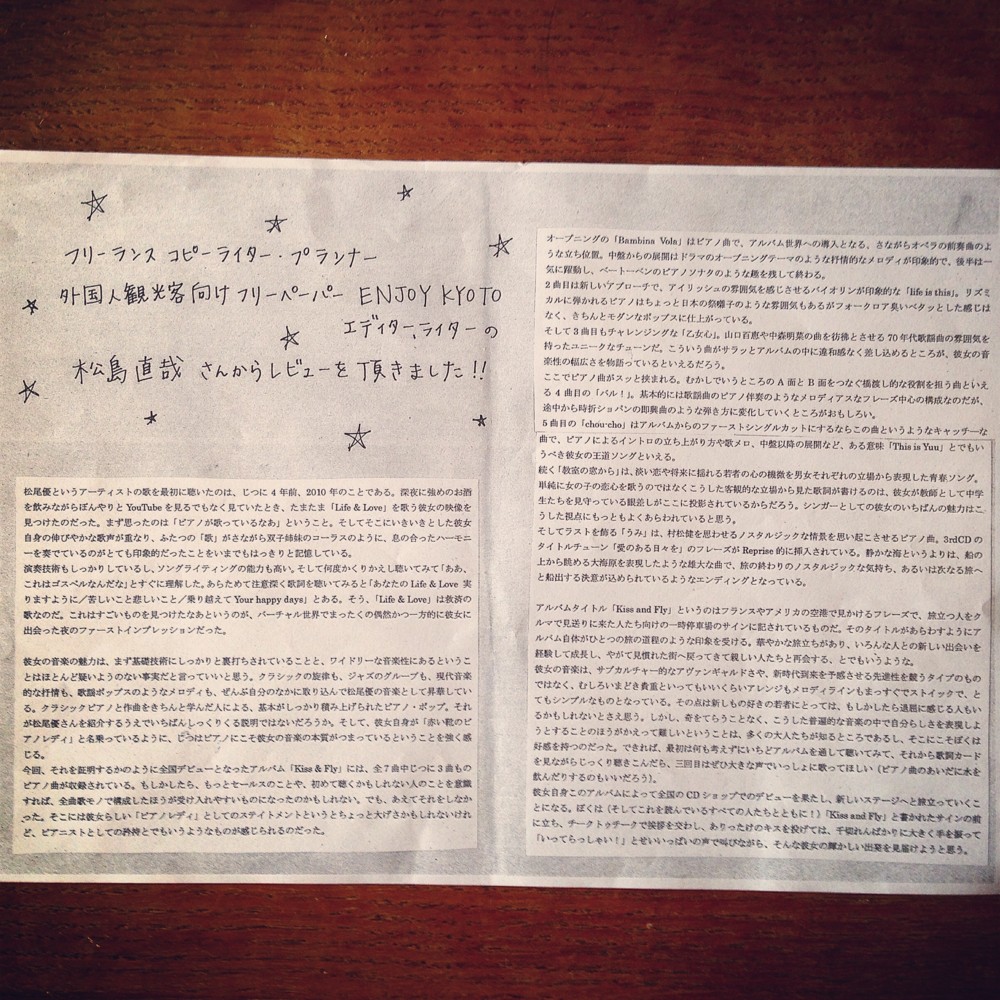 フリーランス コピーライター・プランナー
外国人観光客向けフリーペーパー ENJOY KYOTO
エディター、ライターの
松島直哉 さんからレビューを頂きました!!
松尾優というアーティストの歌を最初に聴いたのは、じつに 4 年前、2010 年のことである。深夜に強めのお酒
を飲みながらぼんやりと YouTube を見るでもなく見ていたとき、たまたま「Life & Love」を歌う彼女の映像を
見つけたのだった。まず思ったのは「ピアノが歌っているなあ」ということ。そしてそこにいきいきとした彼女
自身の伸びやかな歌声が重なり、ふたつの「歌」がさながら双子姉妹のコーラスのように、息の合ったハーモニ
ーを奏でているのがとても印象的だったことをいまでもはっきりと記憶している。
演奏技術もしっかりしているし、ソングライティングの能力も高い。そして何度かくりかえし聴いてみて「ああ、
これはゴスペルなんだな」とすぐに理解した。あらためて注意深く歌詞を聴いてみると「あなたの Life & Love 実
りますように／苦しいこと悲しいこと／乗り越えて Your happy days」とある。そう、「Life & Love」は救済の
歌なのだ。これはすごいものを見つけたなあというのが、バーチャル世界でまったくの偶然かつ一方的に彼女に
出会った夜のファーストインプレッションだった。
彼女の音楽の魅力は、まず基礎技術にしっかりと裏打ちされていることと、ワイドリーな音楽性にあるというこ
とはほとんど疑いようのない事実だと言っていいと思う。クラシックの旋律も、ジャズのグルーブも、現代音楽
的な抒情も、歌謡ポップスのようなメロディも、ぜんぶ自分のなかに取り込んで松尾優の音楽として昇華してい
る。クラシックピアノと作曲をきちんと学んだ人による、基本がしっかり積み上げられたピアノ・ポップ。それ
が松尾優さんを紹介するうえでいちばんしっくりくる説明ではないだろうか。そして、彼女自身が「赤い靴のピ
アノレディ」と名乗っているように、じつはピアノにこそ彼女の音楽の本質がつまっているということを強く感
じる。
今回、それを証明するかのように全国デビューとなったアルバム「Kiss & Fly」には、全 7 曲中じつに 3 曲もの
ピアノ曲が収録されている。もしかしたら、もっとセールスのことや、初めて聴くかもしれない人のことを意識
すれば、全曲歌モノで構成したほうが受け入れやすいものになったのかもしれない。でも、あえてそれをしなか
った。そこには彼女らしい「ピアノレディ」としてのステイトメントというとちょっと大げさかもしれないけれ
ど、ピアニストとしての矜持とでもいうようなものが感じられるのだった。
オープニングの「Bambina Vola」はピアノ曲で、アルバム世界への導入となる、さながらオペラの前奏曲のよ
うな立ち位置。中盤からの展開はドラマのオープニングテーマのような抒情的なメロディが印象的で、後半は一
気に躍動し、ベートーベンのピアノソナタのような趣を残して終わる。
2 曲目は新しいアプローチで、アイリッシュの雰囲気を感じさせるバイオリンが印象的な「life is this」。リズミ
カルに弾かれるピアノはちょっと日本の祭囃子のような雰囲気もあるがフォークロア臭いベタッとした感じは
なく、きちんとモダンなポップスに仕上がっている。
そして 3 曲目もチャレンジングな「乙女心」。山口百恵や中森明菜の曲を彷彿とさせる 70 年代歌謡曲の雰囲気を
持ったユニークなチューンだ。こういう曲がサラッとアルバムの中に違和感なく差し込めるところが、彼女の音
楽性の幅広さを物語っているといえるだろう。
ここでピアノ曲がスッと挟まれる。むかしでいうところの A 面と B 面をつなぐ橋渡し的な役割を担う曲といえ
る 4 曲目の「バル！」。基本的には歌謡曲のピアノ伴奏のようなメロディアスなフレーズ中心の構成なのだが、
途中から時折ショパンの即興曲のような弾き方に変化していくところがおもしろい。
5 曲目の「chou-cho」はアルバムからのファーストシングルカットにするならこの曲というようなキャッチーな
曲で、ピアノによるイントロの立ち上がり方や歌メロ、中盤以降の展開など、ある意味「This is Yuu」とでもい
うべき彼女の王道ソングといえる。
続く「教室の窓から」は、淡い恋や将来に揺れる若者の心の機微を男女それぞれの立場から表現した青春ソング。
単純に女の子の恋心を歌うのではなくこうした客観的な立場から見た歌詞が書けるのは、彼女が教師として中学
生たちを見守っている眼差しがここに投影されているからだろう。シンガーとしての彼女のいちばんの魅力はこ
うした視点にもっともよくあらわれていると思う。
そしてラストを飾る「うみ」は、村松健を思わせるノスタルジックな情景を思い起こさせるピアノ曲。3rdCD の
タイトルチューン「愛のある日々を」のフレーズが Reprise 的に挿入されている。静かな海というよりは、船の
上から眺める大海原を表現したような雄大な曲で、旅の終わりのノスタルジックな気持ち、あるいは次なる旅へ
と船出する決意が込められているようなエンディングとなっている。
アルバムタイトル「Kiss and Fly」というのはフランスやアメリカの空港で見かけるフレーズで、旅立つ人をク
ルマで見送りに来た人たち向けの一時停車場のサインに記されているものだ。そのタイトルがあらわすようにア
ルバム自体がひとつの旅の道程のような印象を受ける。華やかな旅立ちがあり、いろんな人との新しい出会いを
経験して成長し、やがて見慣れた街へ戻ってきて親しい人たちと再会する、とでもいうような。
彼女の音楽は、サブカルチャー的なアヴァンギャルドさや、新時代到来を予感させる先進性を競うタイプのもの
ではなく、むしろいまどき貴重といってもいいくらいアレンジもメロディラインもまっすぐでストイックで、と
てもシンプルなものとなっている。その点は新しもの好きの若者にとっては、もしかしたら退屈に感じる人もい
るかもしれないとさえ思う。しかし、奇をてらうことなく、こうした普遍的な音楽の中で自分らしさを表現しよ
うとすることのほうがかえって難しいということは、多くの大人たちが知るところであるし、そこにこそぼくは
好感を持つのだった。できれば、最初は何も考えずにいちどアルバムを通して聴いてみて、それから歌詞カード
を見ながらじっくり聴きこんだら、三回目はぜひ大きな声でいっしょに歌ってほしい（ピアノ曲のあいだに水を
飲んだりするのもいいだろう）。
彼女自身このアルバムによって全国の CD ショップでのデビューを果たし、新しいステージへと旅立っていくこ
とになる。ぼくは（そしてこれを読んでいるすべての人たちとともに！）「Kiss and Fly」と書かれたサインの前
に立ち、チークトゥチークで挨拶を交わし、ありったけのキスを投げては、千切れんばかりに大きく手を振って
「いってらっしゃい！」とせいいっぱいの声で叫びながら、そんな彼女の輝かしい出発を見届けようと思う。